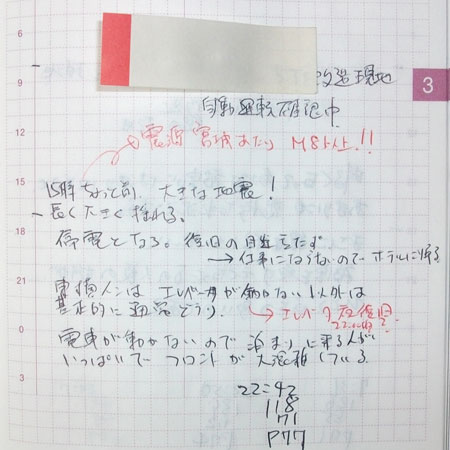 6
改造現地
3
9
自動運転確認中
12
震源 宮城あたり M8以上!!
15
15時ちょっと前、大きな地震!
長く大きく揺れる。
18
停電となる。復旧の目途立たず
→仕事にならないのでホテルに帰る
21
東横インは エレベータが動かない以外は
基本的に通常どうり。→エレベータ夜復旧
22:00頃
0
電車が動かないので 泊まりに来る人が
いっぱいで フロントが 大混雑している。
3
22:42
118
71
P77